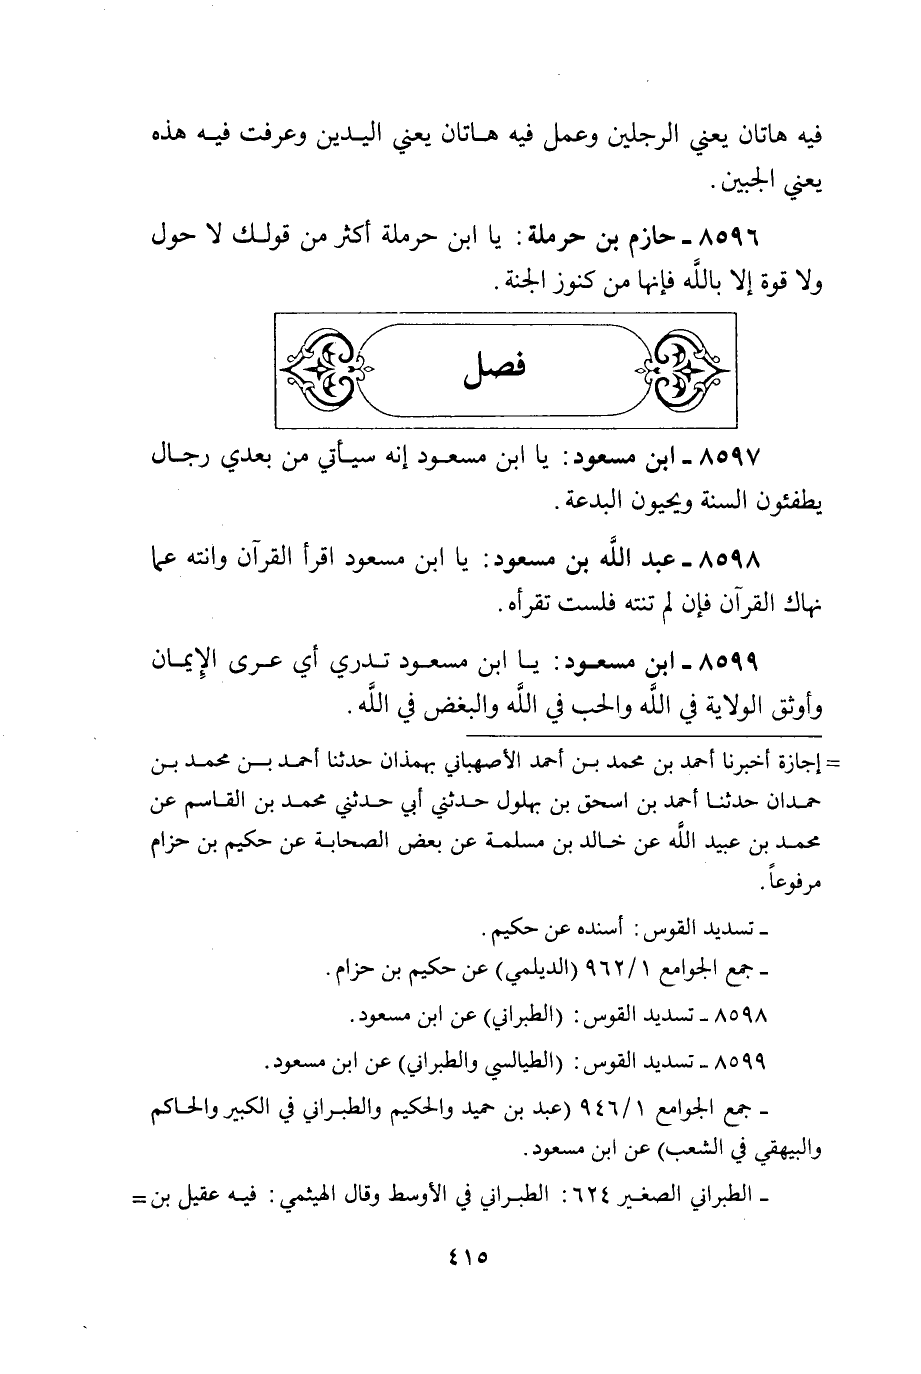 فيه هاتان يعني الرجلين وعمل فيه هاتان يعني اليدين وعرفت فيه هذه
يعني الجبين.
٨٥٩٦ ـ حازم بن حرملة: يا ابن حرملة أكثر من قولك لا حول
ولا قوة إلا باللَّه فإنها من كنوز الجنة.
فصل
٨٥٩٧ ـ ابن مسعود: يا ابن مسعود إنه سيأتي من بعدي رجال
يطفئون السنة ويحيون البدعة.
٨٥٩٨ ـ عبد اللَّه بن مسعود: يا ابن مسعود اقرأ القرآن وانته عما
نهاك القرآن فإن لم تنته فلست تقرأه.
٨٥٩٩ ـ ابن مسعود: يا ابن مسعود تدري أي عرى الإِيمان
وأوثق الولاية في اللَّه والحب في اللَّه والبغض في اللَّه.
= إجازة أخبرنا أحمد بن محمد بن أحمد الأصهباني بهمذان حدثنا أحمد بن محمد بن
حمدان حدثنا أحمد بن اسحق بن بهلول حدثني أبي حدثني محمد بن القاسم عن
محمد بن عبيد اللَّه عن خالد بن مسلمة عن بعض الصحابة عن حكيم بن حزام
مرفوعاً.
ـ تسديد القوس: أسنده عن حكيم.
ـ جمع الجوامع ١/ ٩٦٢ (الديلمي) عن حكيم بن حزام.
٨٥٩٨ ـ تسديد القوس: (الطبراني) عن ابن مسعود.
٨٥٩٩ ـ تسديد القوس: (الطيالسي والطبراني) عن ابن مسعود.
ـ جمع الجوامع ١/ ٩٤٦ (عبد بن حميد والحكيم والطبراني في الكبير والحاكم
والبيهقي في الشعب) عن ابن مسعود.
ـ الطبراني الصغير ٦٢٤: الطبراني في الأوسط وقال الهيثمي: فيه عقيل بن =
٤١٥